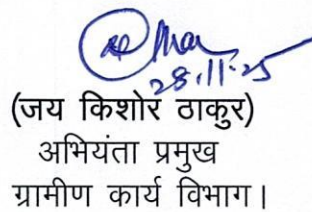 28.11.25
(जय किशोर ठाकुर)
अभियंता प्रमुख
ग्रामीण कार्य विभाग।